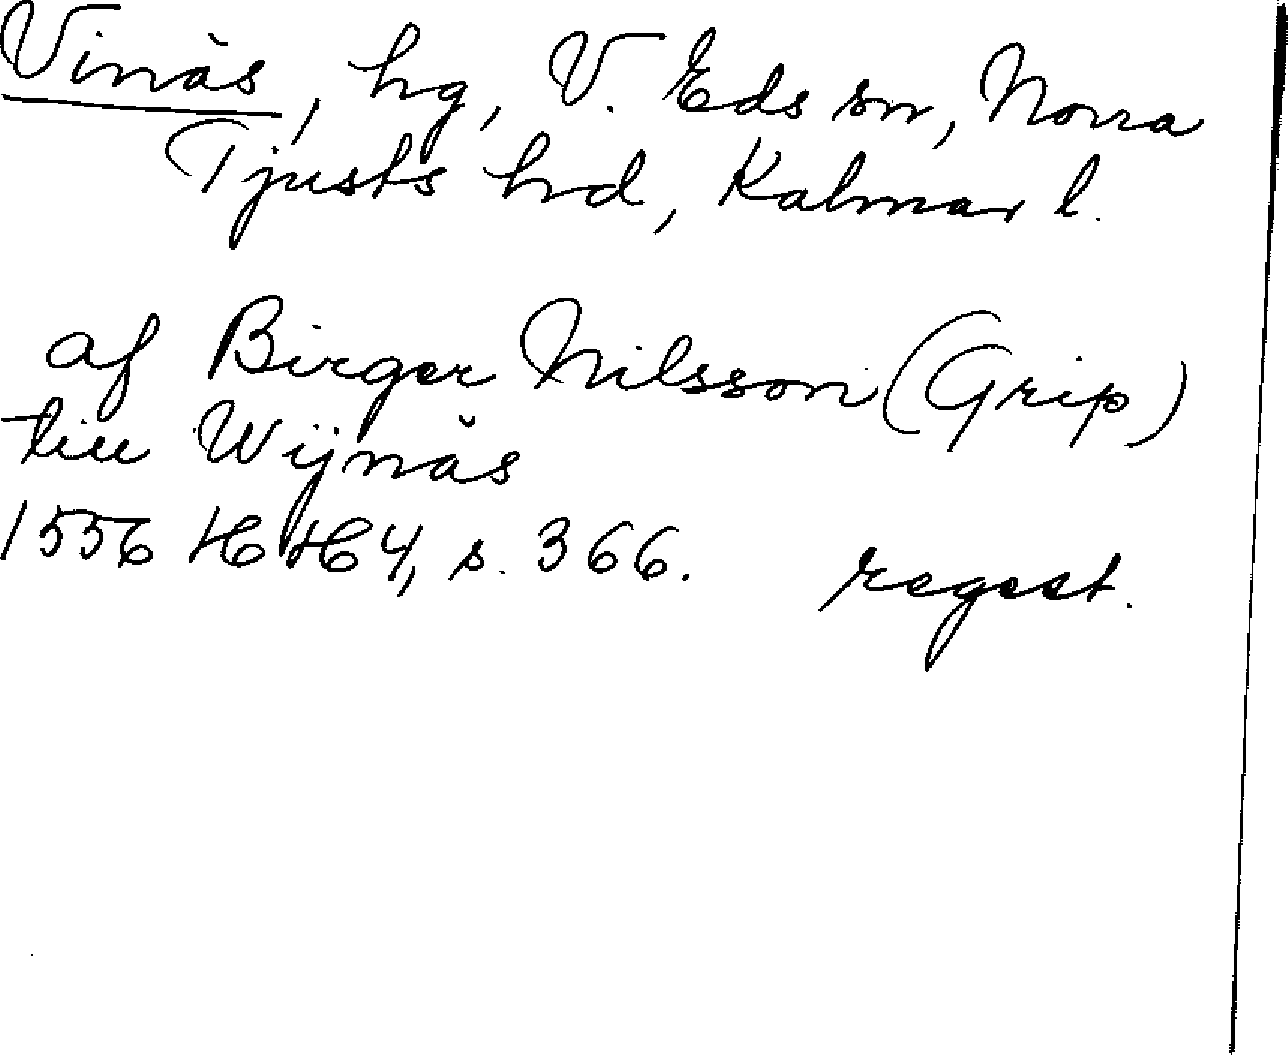 Vinäs, hg, V. Eds sn, Norra
Tjusts hd, Kalmar l.
af Birger Nilsson (Grip)
till Wijnäs
1556 HH 4, s. 366. regest.